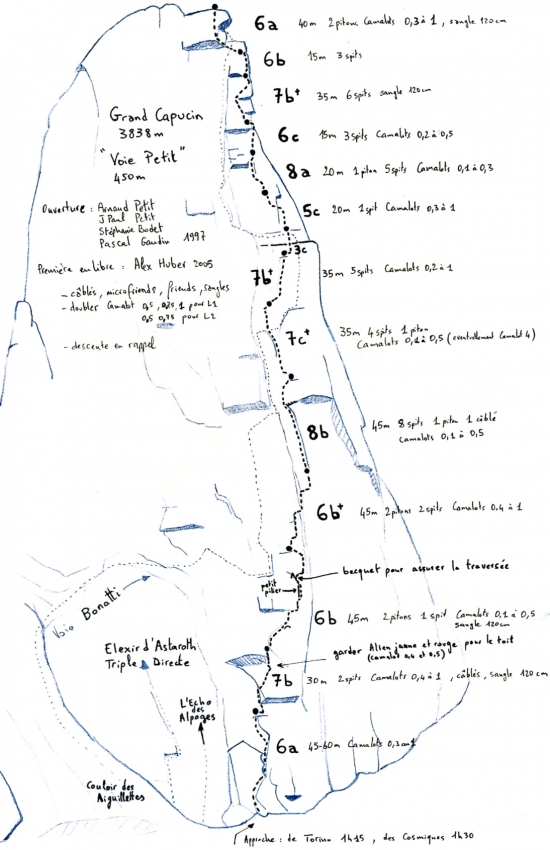 6a 40m 2 pitons Camalots 0,3 à 1, sangle 120cm
6b 15m 3 spits
7b+ 35m 6 spits sangle 120cm
Grand Capucin
3838m
"Voie Petit"
450m
6c 15m 3 spits Camalots 0,2 à 0,5
8a 20m 1 piton 5 spits Camalots 0,1 à 0,3
Ouverture : Arnaud Petit
J Paul Petit
Stéphanie Bodet
Pascal Gaudin 1997
5c 20m 1 spit Camalots 0,3 à 1
3c
Première en libre : Alex Huber 2005
7b+ 35m 5 spits Camalots 0,2 à 1
- câblés, microfriends, friends, sangles
- doubler Camalot 0,5, 0,75, 1 pour L1
0,5 0,75 pour L2
- descente en rappel
7c+ 35m 4 spits 1 piton
Camalots 0,1 à 0,5 (eventuellement Camalot 4)
8b 45m 8 spits 1 piton 1 câblé
Camalots 0,1 à 0,5
6b+ 45m 2 pitons 2 spits Camalots 0,4 à 1
becquet pour assurer la traversée
petit
pilier
Voie Bonatti
6b 45m 2 pitons 1 spit Camalots 0,1 à 0,5
sangle 120cm
Elexir d'Astaroth
Triple Directe
garder Alien jaune et rouge pour le toit
(camalot 0,4 et 0,5)
7b 30m 2 spits Camalots 0,4 à 1, câblés, sangle 120 cm
L'Echo
des
Alpages
6a 45-60m Camalots 0,3 au 1
Couloir des
Aiguillettes
Approche : de Torino 1h15, des Cosmiques 1h30